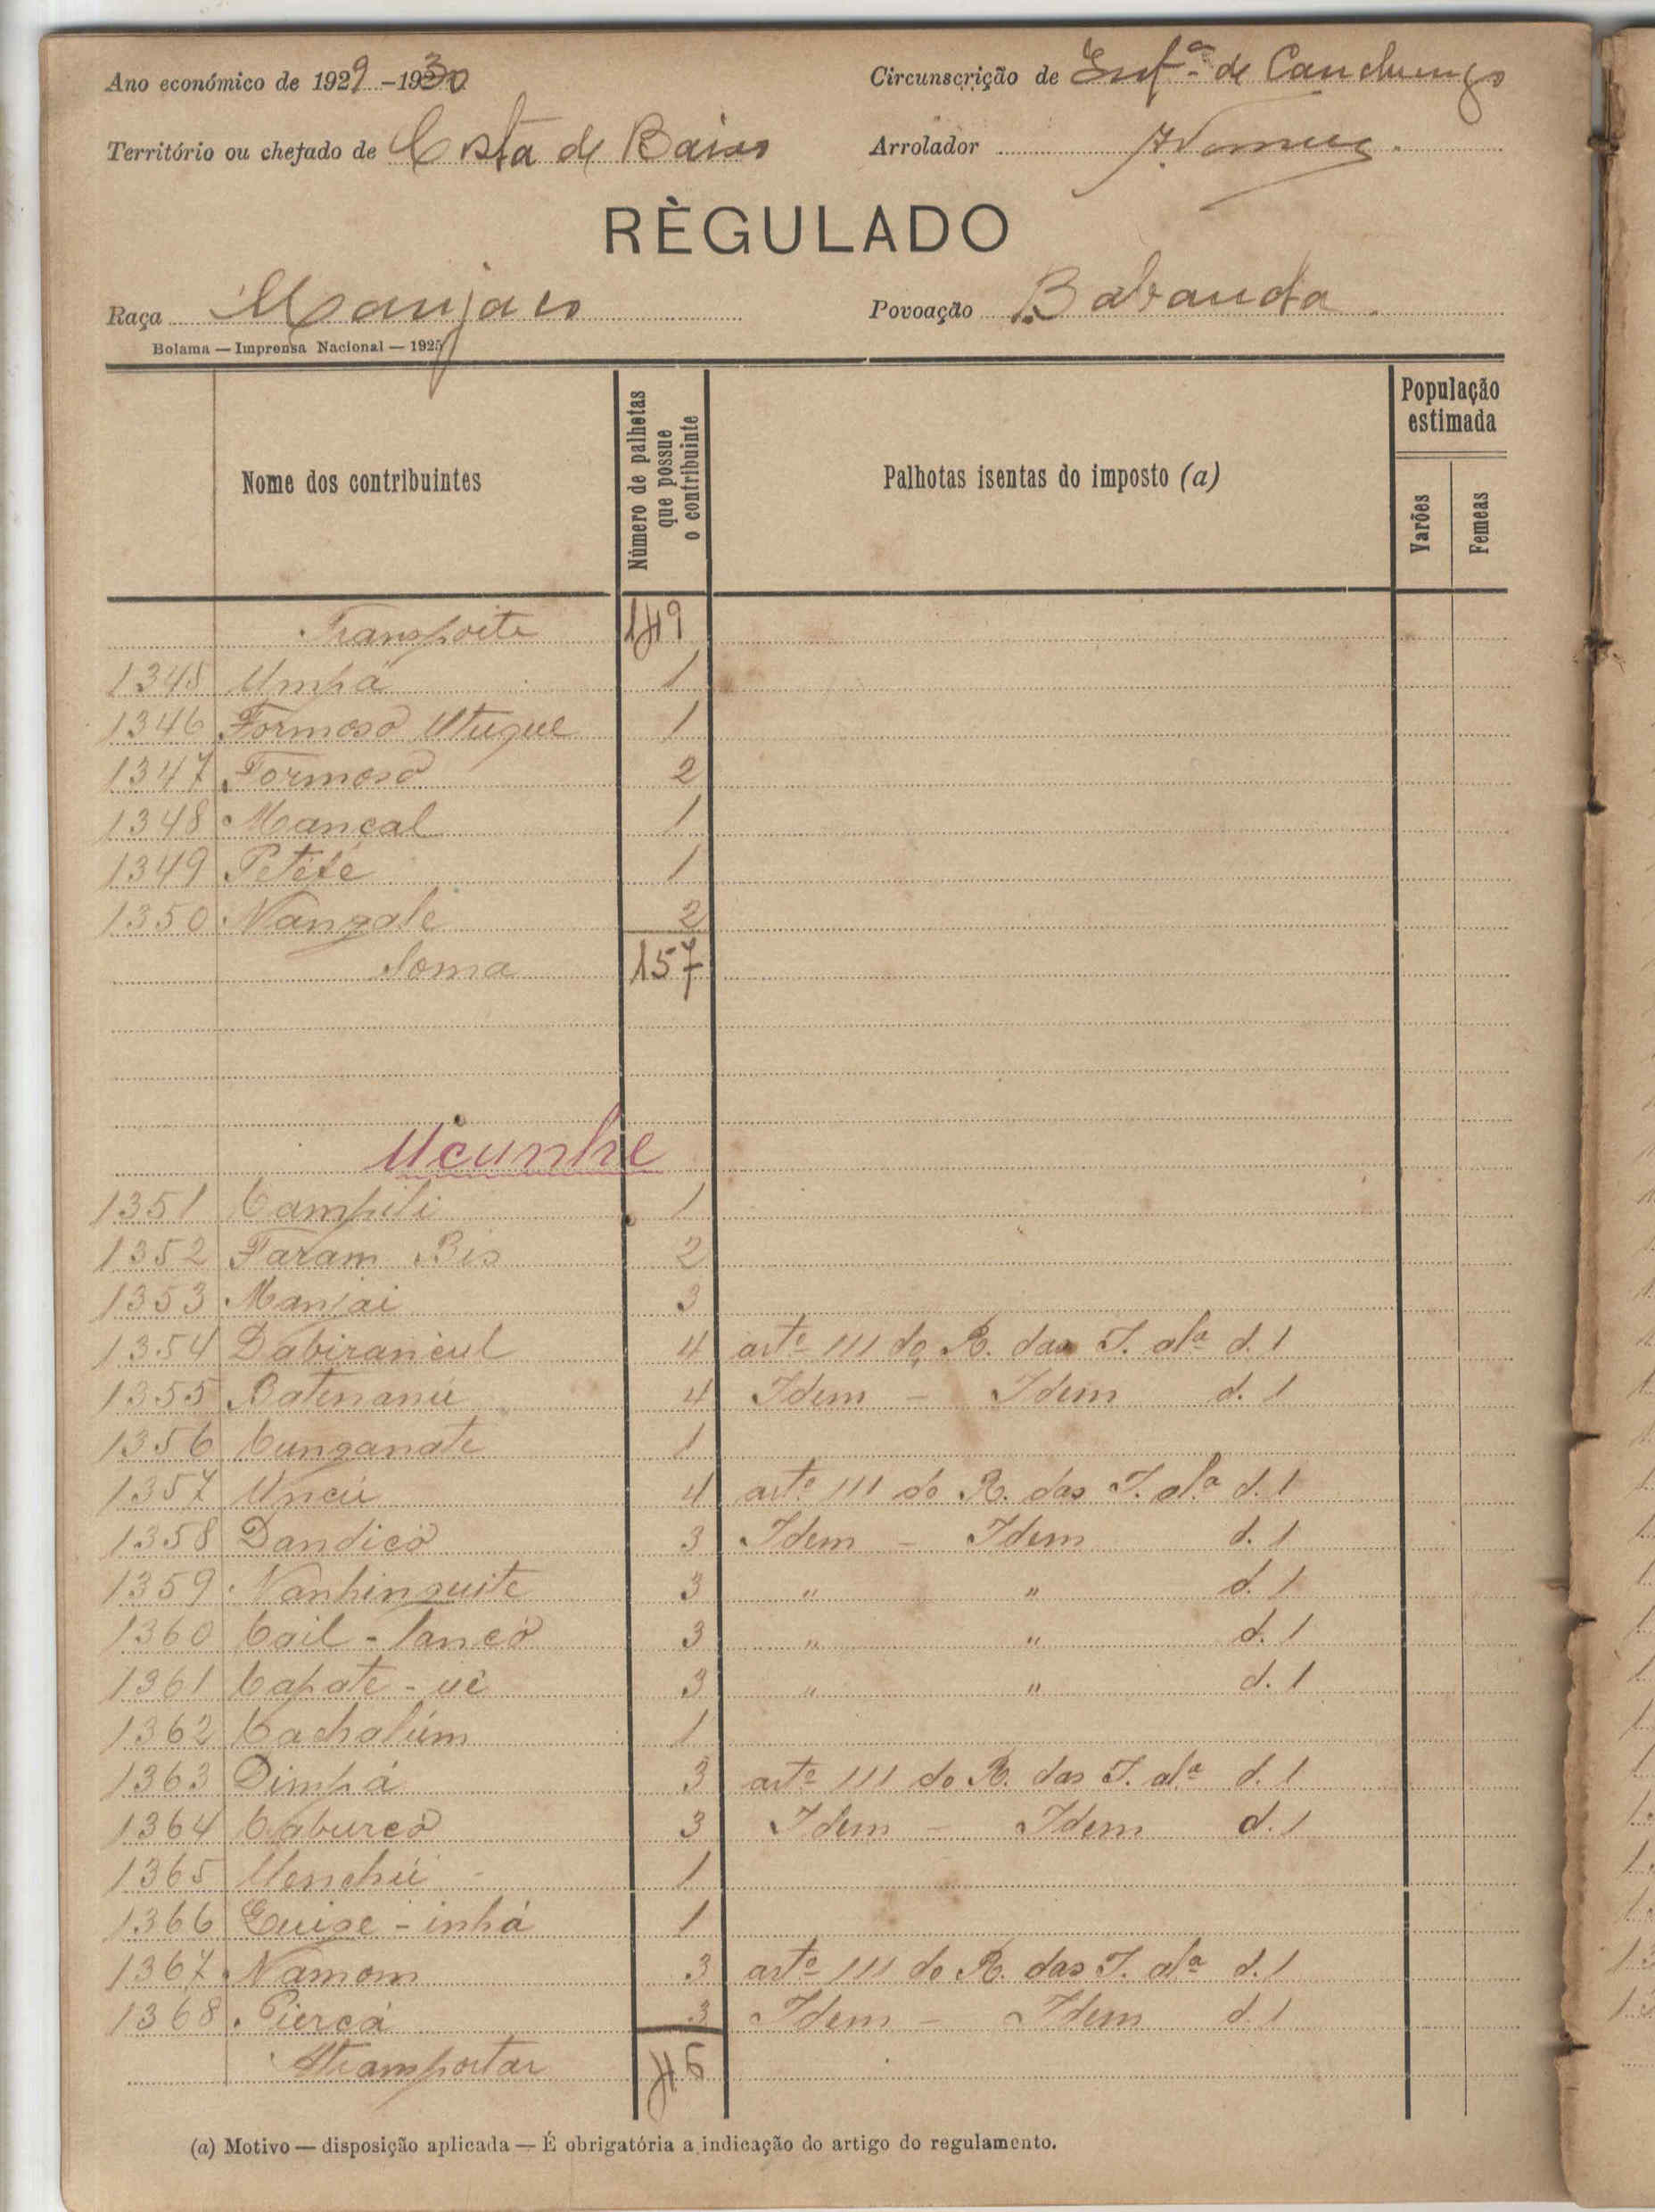 Ano económico de 1929 -1930
Circunscrição de Inf.ª de Canchungo
Território ou chefado de Costa de Baixo
Arrolador
RÈGULADO
Raça Manjaco
Povoação Babanda
Bolama — Imprensa Nacional — 1925
Nome dos contribuintes
Número de palhotas que possue o contribuinte
Palhotas isentas do imposto (a)
População estimada
Varões
Femeas
Transporte 149
1345 Umpá 1
1346 Formoso Utuque 1
1347 Formoso 2
1348 Mancal 1
1349 Petêfe 1
1350 Nangale 2
Soma 157
Ucunhe
1351 Campili 1
1352 Faram Bis 2
1353 Manjai 3
1354 Dabirancul 4 artº 111 do R. das I. alª d. 1
1355 Batenanú 4 Idem - Idem d. 1
1356 Cunganate 1
1357 Uncú 4 artº 111 do R. das I. alª d. 1
1358 Dandicó 3 Idem - Idem d. 1
1359 Nanhinguite 3 " " d. 1
1360 Cail - Tancó 3 " " d. 1
1361 Capate - uê 3 " " d. 1
1362 Cachalúm 1
1363 Dimpá 3 artº 111 do R. das I. alª d. 1
1364 Caburcó 3 Idem - Idem d. 1
1365 Uenchú - 1
1366 Quige - inhá 1
1367 Namom 3 artº 111 do R. das I. alª d. 1
1368 Piercá 3 Idem - Idem d. 1
A transportar 45
(a) Motivo — disposição aplicada — É obrigatória a indicação do artigo do regulamento.